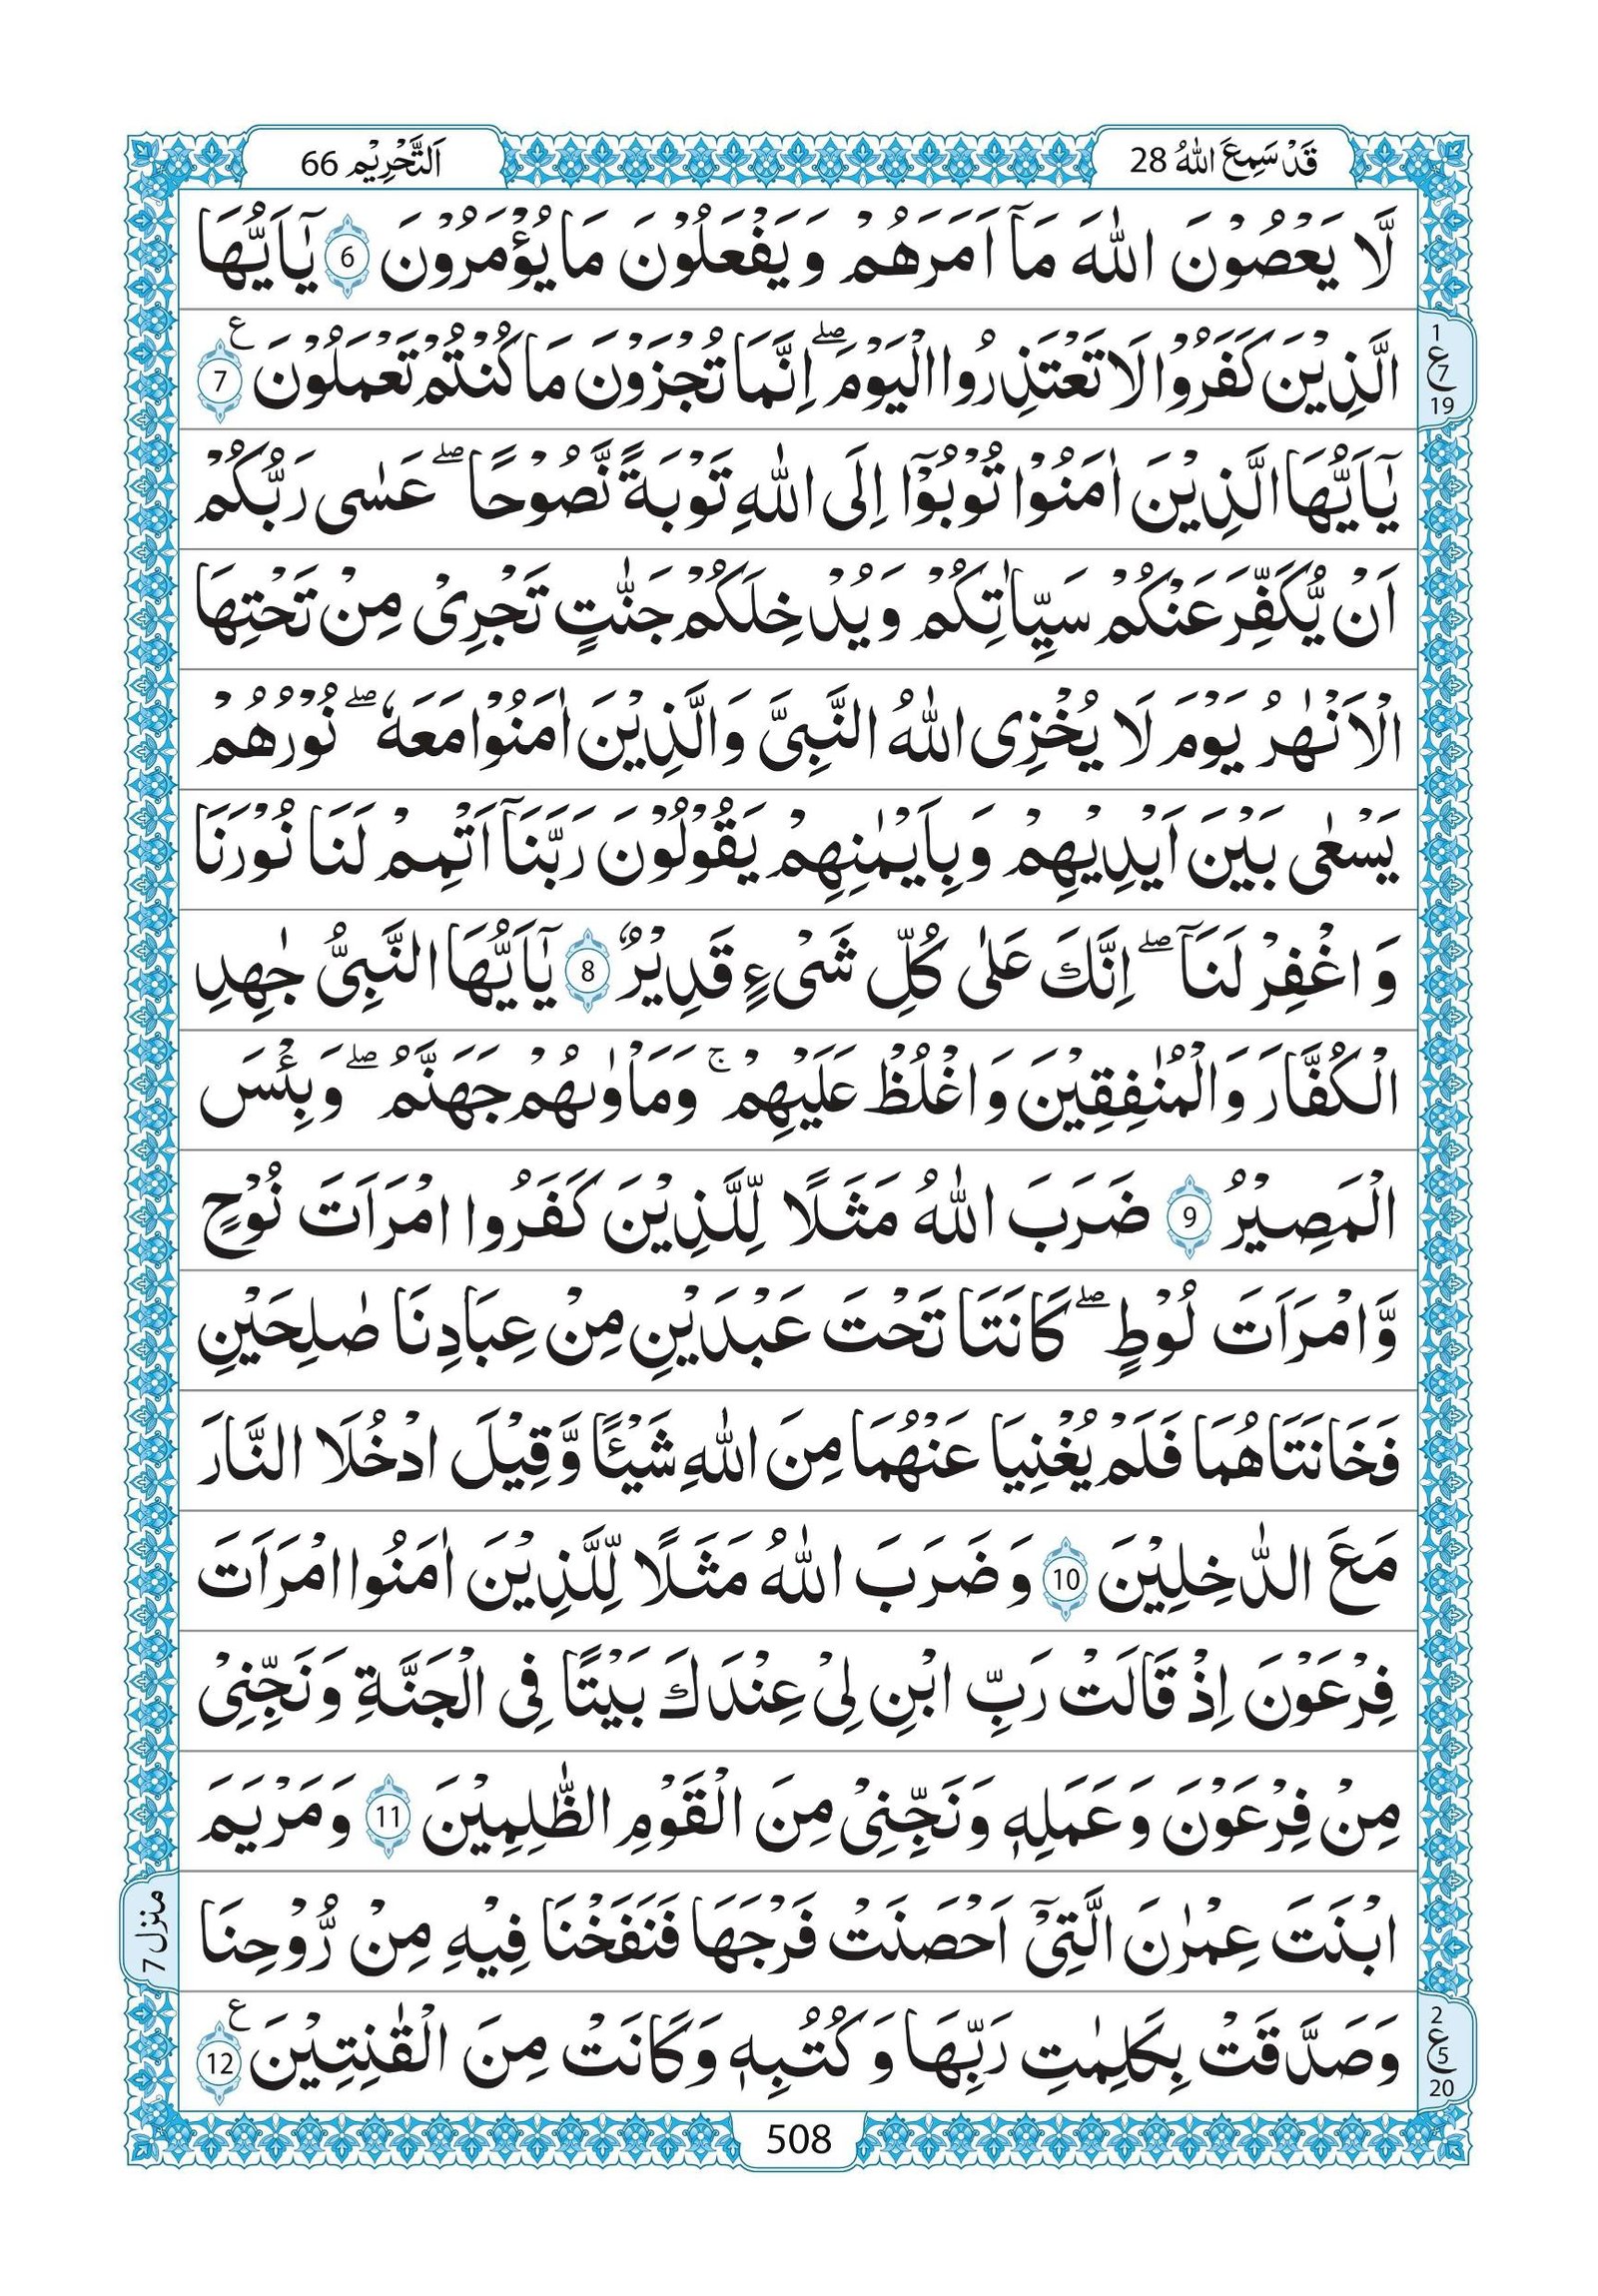 قَدْ سَمِعَ اللّٰهُ 28
اَلتَّحْرِيْم 66
لَّا يَعْصُوْنَ اللّٰهَ مَاۤ اَمَرَهُمْ وَ يَفْعَلُوْنَ مَا يُؤْمَرُوْنَ 6 يٰۤاَيُّهَا
الَّذِيْنَ كَفَرُوْا لَا تَعْتَذِرُوا الْيَوْمَ ۖ اِنَّمَا تُجْزَوْنَ مَا كُنْتُمْ تَعْمَلُوْنَ ع 7
1
ع 7
19
يٰۤاَيُّهَا الَّذِيْنَ اٰمَنُوْا تُوْبُوْۤا اِلَى اللّٰهِ تَوْبَةً نَّصُوْحًا ۖ عَسٰى رَبُّكُمْ
اَنْ يُّكَفِّرَ عَنْكُمْ سَيِّاٰتِكُمْ وَ يُدْخِلَكُمْ جَنّٰتٍ تَجْرِيْ مِنْ تَحْتِهَا
الْاَنْهٰرُ يَوْمَ لَا يُخْزِى اللّٰهُ النَّبِيَّ وَ الَّذِيْنَ اٰمَنُوْا مَعَهٗ ۖ نُوْرُهُمْ
يَسْعٰى بَيْنَ اَيْدِيْهِمْ وَ بِاَيْمٰنِهِمْ يَقُوْلُوْنَ رَبَّنَاۤ اَتْمِمْ لَنَا نُوْرَنَا
وَ اغْفِرْ لَنَاۤ ۖ اِنَّكَ عَلٰى كُلِّ شَيْءٍ قَدِيْرٌ 8 يٰۤاَيُّهَا النَّبِيُّ جٰهِدِ
الْكُفَّارَ وَ الْمُنٰفِقِيْنَ وَ اغْلُظْ عَلَيْهِمْ ۚ وَ مَاْوٰىهُمْ جَهَنَّمُ ۖ وَ بِئْسَ
الْمَصِيْرُ 9 ضَرَبَ اللّٰهُ مَثَلًا لِّلَّذِيْنَ كَفَرُوا امْرَاَتَ نُوْحٍ
وَّ امْرَاَتَ لُوْطٍ ۖ كَانَتَا تَحْتَ عَبْدَيْنِ مِنْ عِبَادِنَا صٰلِحَيْنِ
فَخَانَتَاهُمَا فَلَمْ يُغْنِيَا عَنْهُمَا مِنَ اللّٰهِ شَيْـًٔا وَّ قِيْلَ ادْخُلَا النَّارَ
مَعَ الدّٰخِلِيْنَ 10 وَ ضَرَبَ اللّٰهُ مَثَلًا لِّلَّذِيْنَ اٰمَنُوا امْرَاَتَ
فِرْعَوْنَ اِذْ قَالَتْ رَبِّ ابْنِ لِيْ عِنْدَكَ بَيْتًا فِي الْجَنَّةِ وَ نَجِّنِيْ
مِنْ فِرْعَوْنَ وَ عَمَلِهٖ وَ نَجِّنِيْ مِنَ الْقَوْمِ الظّٰلِمِيْنَ 11 وَ مَرْيَمَ
ابْنَتَ عِمْرٰنَ الَّتِيْۤ اَحْصَنَتْ فَرْجَهَا فَنَفَخْنَا فِيْهِ مِنْ رُّوْحِنَا
منزل 7
وَ صَدَّقَتْ بِكَلِمٰتِ رَبِّهَا وَ كُتُبِهٖ وَ كَانَتْ مِنَ الْقٰنِتِيْنَ ع 12
2
ع 5
20
508